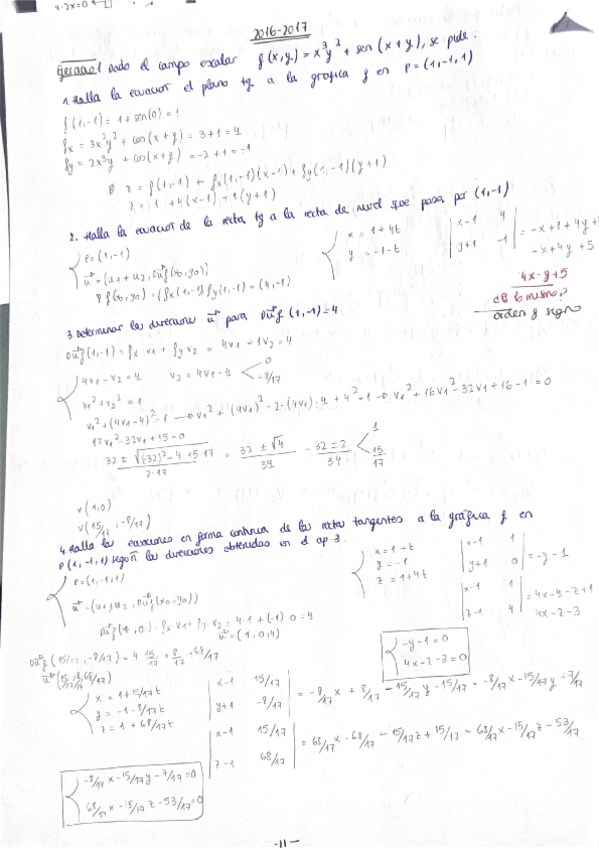 x-2x=0
2016-2017
Dado el campo escalar f(x,y) = x³y² + sen(x+y), se pide:
1. Halla la ecuacion el plano tg a la grafica f en P=(1,-1,1)
f(1,-1) = 1+sen(0) = 1
fx = 3x²y² + cos(x+y) = 3+1 = 4
fy = 2x³y + cos(x+y) = -2+1 = -1
z = f(1,-1) + fx(1,-1)(x-1) + fy(1,-1)(y+1)
z = 1 + 4(x-1) - 1(y+1)
2. Halla la ecuacion de la recta tg a la recta de nivel que pasa por (1,-1)
P=(1,-1)
u=(u1+u2, Duf(x0,y0))
f(x0,y0) = (fx(1,-1), fy(1,-1)) = (4,-1)
x = 1+4t
y = -1-t
x-1 4
y+1 -1
= -x+1+4y+
-x+4y+5
4x-y+5
lo mismo?
orden y signo
3. Determinar las direcciones u para Duf(1,-1)=4
Duf(1,-1) = fx·v1 + fy v2 = 4v1 - 1v2 = 4
4v1-v2 = 4 v2 = 4v1-4 0
-8/17
v1²+v2² = 1
v1²+(4v1-4)² = 1 → v1² + (4v1)² - 2·(4v1)·4 + 4² = 1 → v1² + 16v1² - 32v1 + 16 - 1 = 0
17v1² - 32v1 + 15 = 0
32 ± √(-32)² - 4·15·17 / 2·17 = 32 ± √4 / 34 = 32 ± 2 / 34 1
15/17
v(1,0)
v(15/17, -8/17)
4. Halla las ecuaciones en forma continua de las rectas tangentes a la gráfica f en
P(1,-1,1) según las direcciones obtenidas en el ap. 3.
P=(1,-1,1)
u=(u1, u2, Duf(x0,y0))
Duf(1,0) = fx·v1 + fy·v2 = 4·1 + (-1)·0 = 4
u=(1,0,4)
x = 1+t
y = -1
z = 1+4t
x-1 1
y+1 0
= -y-1
x-1 1
z-1 4
= 4x-4-z+1
4x-z-3
-y-1=0
4x-z-3=0
Duf(15/17, -8/17) = 4·15/17 + 8/17 = 68/17
x = 1+15/17t
y = -1-8/17t
z = 1+68/17t
x-1 15/17
y+1 -8/17
= -8/17 x + 8/17 - 15/17 y - 15/17 = -8/17 x - 15/17 y = 7/17
x-1 15/17
z-1 68/17
= 68/17 x - 68/17 - 15/17 z + 15/17 = 68/17 x - 15/17 z - 53/17
-8/17 x - 15/17 y - 7/17 = 0
68/17 x - 15/17 z - 53/17 = 0
-11-